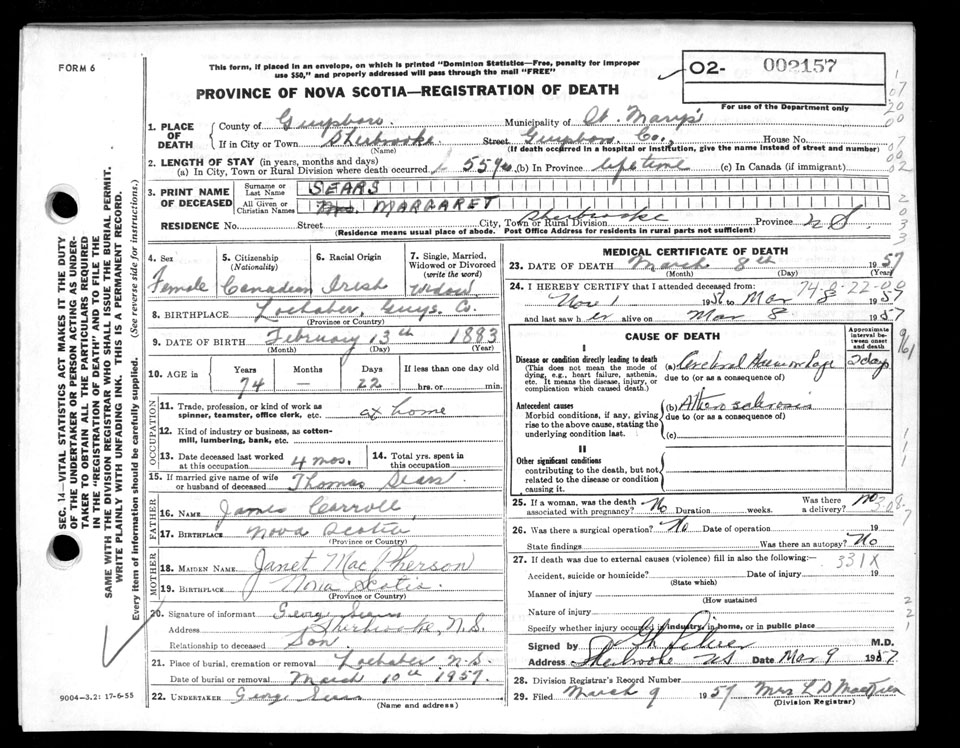 FORM 6
This form, if placed in an envelope, on which is printed "Dominion Statistics—Free, penalty for improper
use $50," and properly addressed will pass through the mail "FREE"
O2- 002157
For use of the Department only
PROVINCE OF NOVA SCOTIA—REGISTRATION OF DEATH
1. PLACE OF DEATH { County of Guysboro. Municipality of St. Mary's
If in City or Town Sherbrooke (Name) Street Guysboro Co., House No.
(If death occurred in a hospital or institution, give the name instead of street and number)
2. LENGTH OF STAY (in years, months and days)
(a) In City, Town or Rural Division where death occurred 55 yrs (b) In Province lifetime (c) In Canada (if immigrant)
3. PRINT NAME OF DECEASED { Surname or Last Name SEARS
All Given or Christian Names Mrs. MARGARET
RESIDENCE No. Street City, Town or Rural Division Sherbrooke Province N.S.
(Residence means usual place of abode. Post Office Address for residents in rural parts not sufficient)
4. Sex 5. Citizenship (Nationality) 6. Racial Origin 7. Single, Married, Widowed or Divorced (write the word)
Female Canadian Irish Widow
8. BIRTHPLACE Lochaber, Guys. Co.
(Province or Country)
9. DATE OF BIRTH February 13th 1883
(Month) (Day) (Year)
10. AGE in { Years Months Days If less than one day old
74 — 22 hrs. or min.
OCCUPATION
11. Trade, profession, or kind of work as
spinner, teamster, office clerk, etc. at home
12. Kind of industry or business, as cotton-
mill, lumbering, bank, etc.
13. Date deceased last worked
at this occupation 4 mos. 14. Total yrs. spent
in this occupation
15. If married give name of wife
or husband of deceased Thomas Sears
FATHER
16. NAME James Carroll
17. BIRTHPLACE Nova Scotia
(Province or Country)
MOTHER
18. MAIDEN NAME Janet MacPherson
19. BIRTHPLACE Nova Scotia
(Province or Country)
20. Signature of informant George Sears
Address Sherbrooke, N.S.
Relationship to deceased Son
21. Place of burial, cremation or removal Lochaber N.S.
Date of burial or removal March 10th 1957.
22. UNDERTAKER George Sears
(Name and address)
9004-3.2: 17-6-55
MEDICAL CERTIFICATE OF DEATH
23. DATE OF DEATH March 8th 1957
(Month) (Day) (Year)
74-0-22-00
24. I HEREBY CERTIFY that I attended deceased from:
Nov 1 195 to Mar 8 1957
and last saw h er alive on Mar 8 1957
CAUSE OF DEATH
Approximate interval between onset and death
I
Disease or condition directly leading to death
(This does not mean the mode of
dying, e.g., heart failure, asthenia,
etc. It means the disease, injury, or
complication which caused death.)
(a) Cerebral Haemorrhage 2 days
due to (or as a consequence of)
Antecedent causes
Morbid conditions, if any, giving
rise to the above cause, stating the
underlying condition last.
(b) Atherosclerosis
due to (or as a consequence of)
(c)
II
Other significant conditions
contributing to the death, but not
related to the disease or condition
causing it.
25. If a woman, was the death
associated with pregnancy? No Duration weeks. Was there
a delivery? no
26. Was there a surgical operation? No Date of operation 19
State findings Was there an autopsy? No
27. If death was due to external causes (violence) fill in also the following:—
331X
Accident, suicide or homicide? Date of injury 19
(State which)
Manner of injury
(How sustained)
Nature of injury
Specify whether injury occurred in industry, in home, or in public place
Signed by M.D.
Address Sherbrooke NS Date Mar 9 1957
28. Division Registrar's Record Number
29. Filed March 9 1957 Mrs L D
(Division Registrar)
SEC. 14—VITAL STATISTICS ACT MAKES IT THE DUTY
OF THE UNDERTAKER OR PERSON ACTING AS UNDER-
TAKER TO OBTAIN ALL THE PARTICULARS REQUIRED
IN THE "REGISTRATION OF DEATH" AND TO FILE THE
SAME WITH THE DIVISION REGISTRAR WHO SHALL ISSUE THE BURIAL PERMIT.
WRITE PLAINLY WITH UNFADING INK. THIS IS A PERMANENT RECORD.
Every item of information should be carefully supplied. (See reverse side for instructions.)